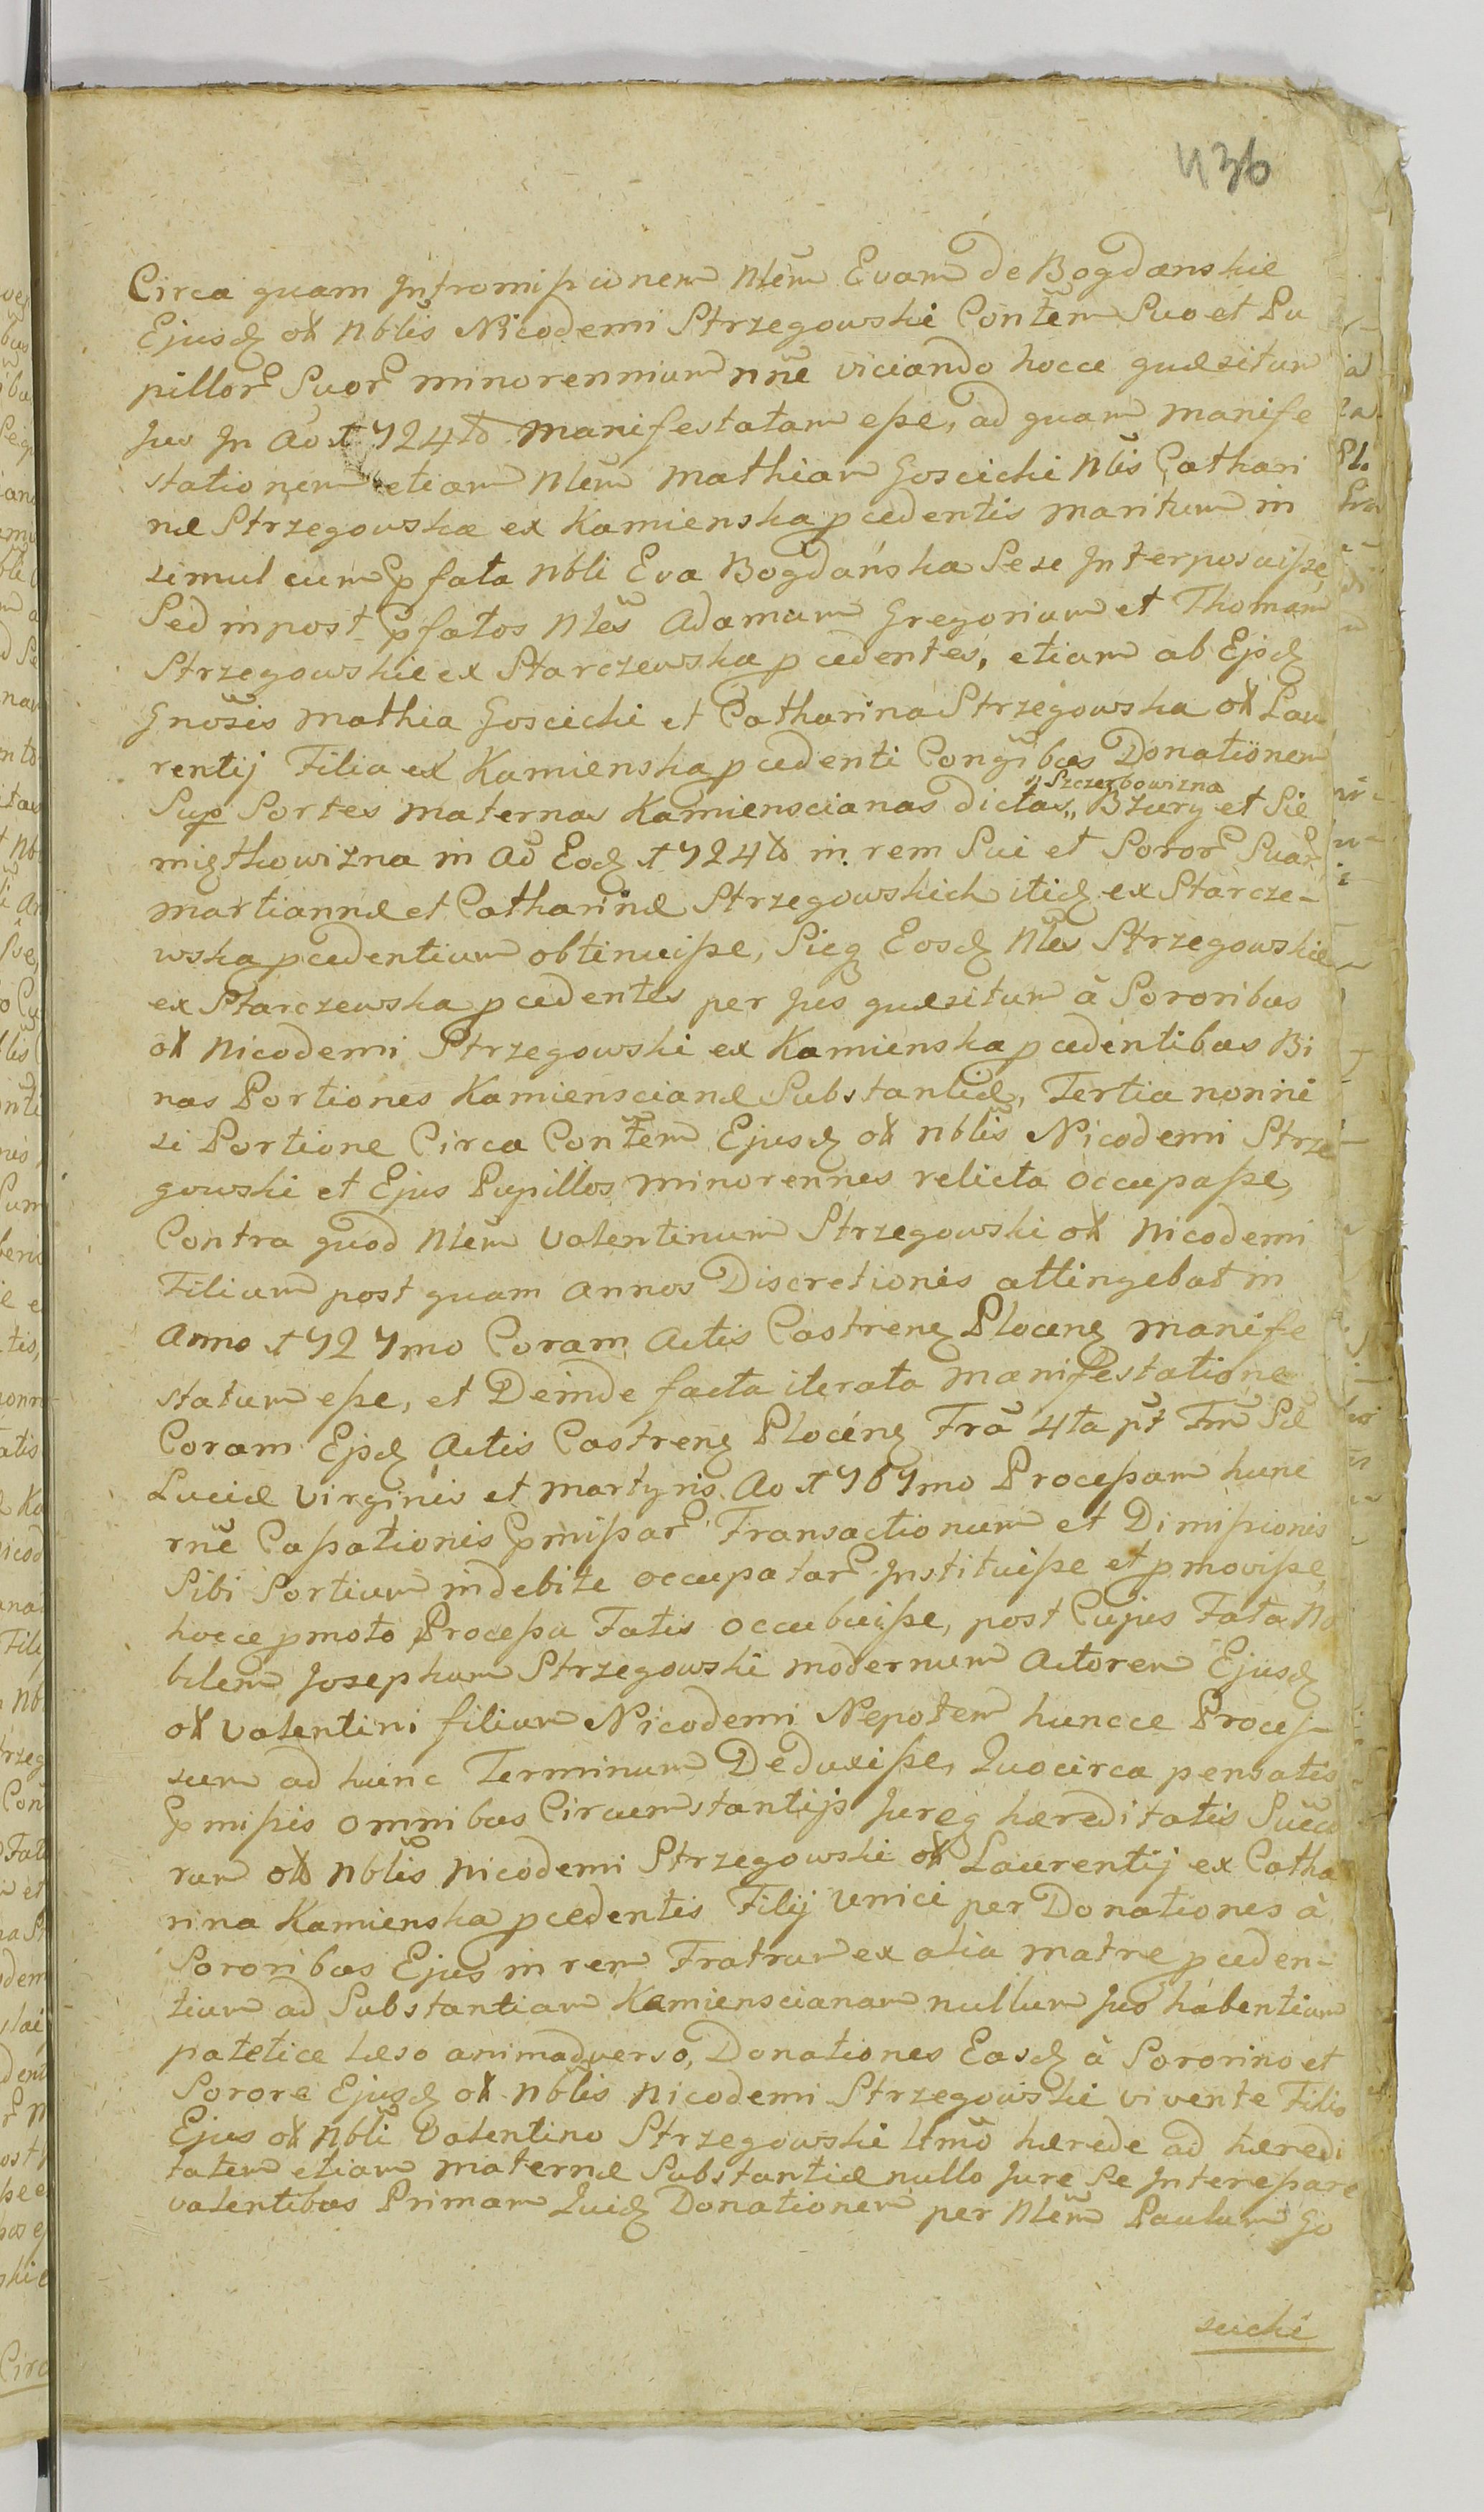 436
Circa quam Intromissionem Nlem Evam de Bogdanskie
Ejusd ol Nblis Nicodemi Strzegowski Contem Suo et Pu
pillor Suor minorennium nne viciando hocce quæsitum
Jus In Ao 1724to Manifestatam esse, ad quam manife
stationem etiam Nlem Mathiam Goscicki Nlis Cathari
næ Strzegowska ex Kamienska pcedentis maritum in
simul cum pfata Nbli Eva Bogdańska Sese Interposuisse,
Sed inpost pfatos Nles Adamum Gregorium et Thomam
Strzegowskie ex Starczewska pcedentes, etiam ab Ejsd
Gnosis Mathia Goscicki et Catharina Strzegowska ol Lau
rentij Filia ex Kamienska pcedenti Congibus Donationem
Sup Sortes maternas Kamienscianas dictas „ Bzury et Sie
„ Szczerbowizna
miętkowizna in Ao Eod 1724to in rem Sui et Soror Suar
Martiannæ et Catharinæ Strzegowskich itid ex Starcze-
wska pcedentium obtinuisse, Sicq Eosd Nles Strzegowskie
ex Starczewska pcedentes per Jus quæsitum à Sororibus
ol Nicodemi Strzegowski ex Kamienska pcedentibus Bi
nas Portiones Kamiensciane Substantiæ, Tertia nonni
si Portione Circa Contem Ejusd ol Nblis Nicodemi Strze
gowski et Ejus Pupillos minorennes relicta occupasse,
Contra quod Nlem Valentinum Strzegowski ol Nicodemi
Filium post quam annos Discretionis attingebat in
Anno 1727mo Coram Actis Castren Plocen manife
statum esse, et Deinde facta iterata Manifestatione
Coram Ejsd Actis Castren Plocen Fra 4ta pt Fm Sæ
Luciæ Virginis et Martyris Ao 1767mo Processum hunc
rne Cassationis pmissar Transactionum et Dimissionis
Sibi Sortium indebite occupatar Instituisse et pmovisse,
hocce pmoto Processu Fatis occubuisse, post Cujus Fata No
bilem Josephum Strzegowski modernum Actorem Ejusd
ol Valentini filium Nicodemi Nepotem huncce Proces-
sum ad hunc Terminum Deduxisse, Quocirca pensatis
pmissis omnibus Circumstantijs Jureq hæreditatis Succu
rum ol Nblis Nicodemi Strzegowski ol Laurentij ex Catha
rina Kamienska pcedentis Filij Unici per Donationes à
Sororibus Ejus in rem Fratrum ex alia matre pceden-
tium ad Substantiam Kamienscianam nullum Jus habentium
patetice læso animadverso, Donationes Easd à Sororino et
Sorore Ejusd ol Nblis Nicodemi Strzegowski vivente Filio
Ejus ol Nbli Valentino Strzegowski ltmo hærede ad hæredi
tatem etiam maternæ Substantiæ nullo Jure Se Interessare
valentibus Primam Quid Donationem per Nlem Paulum Go
scicki